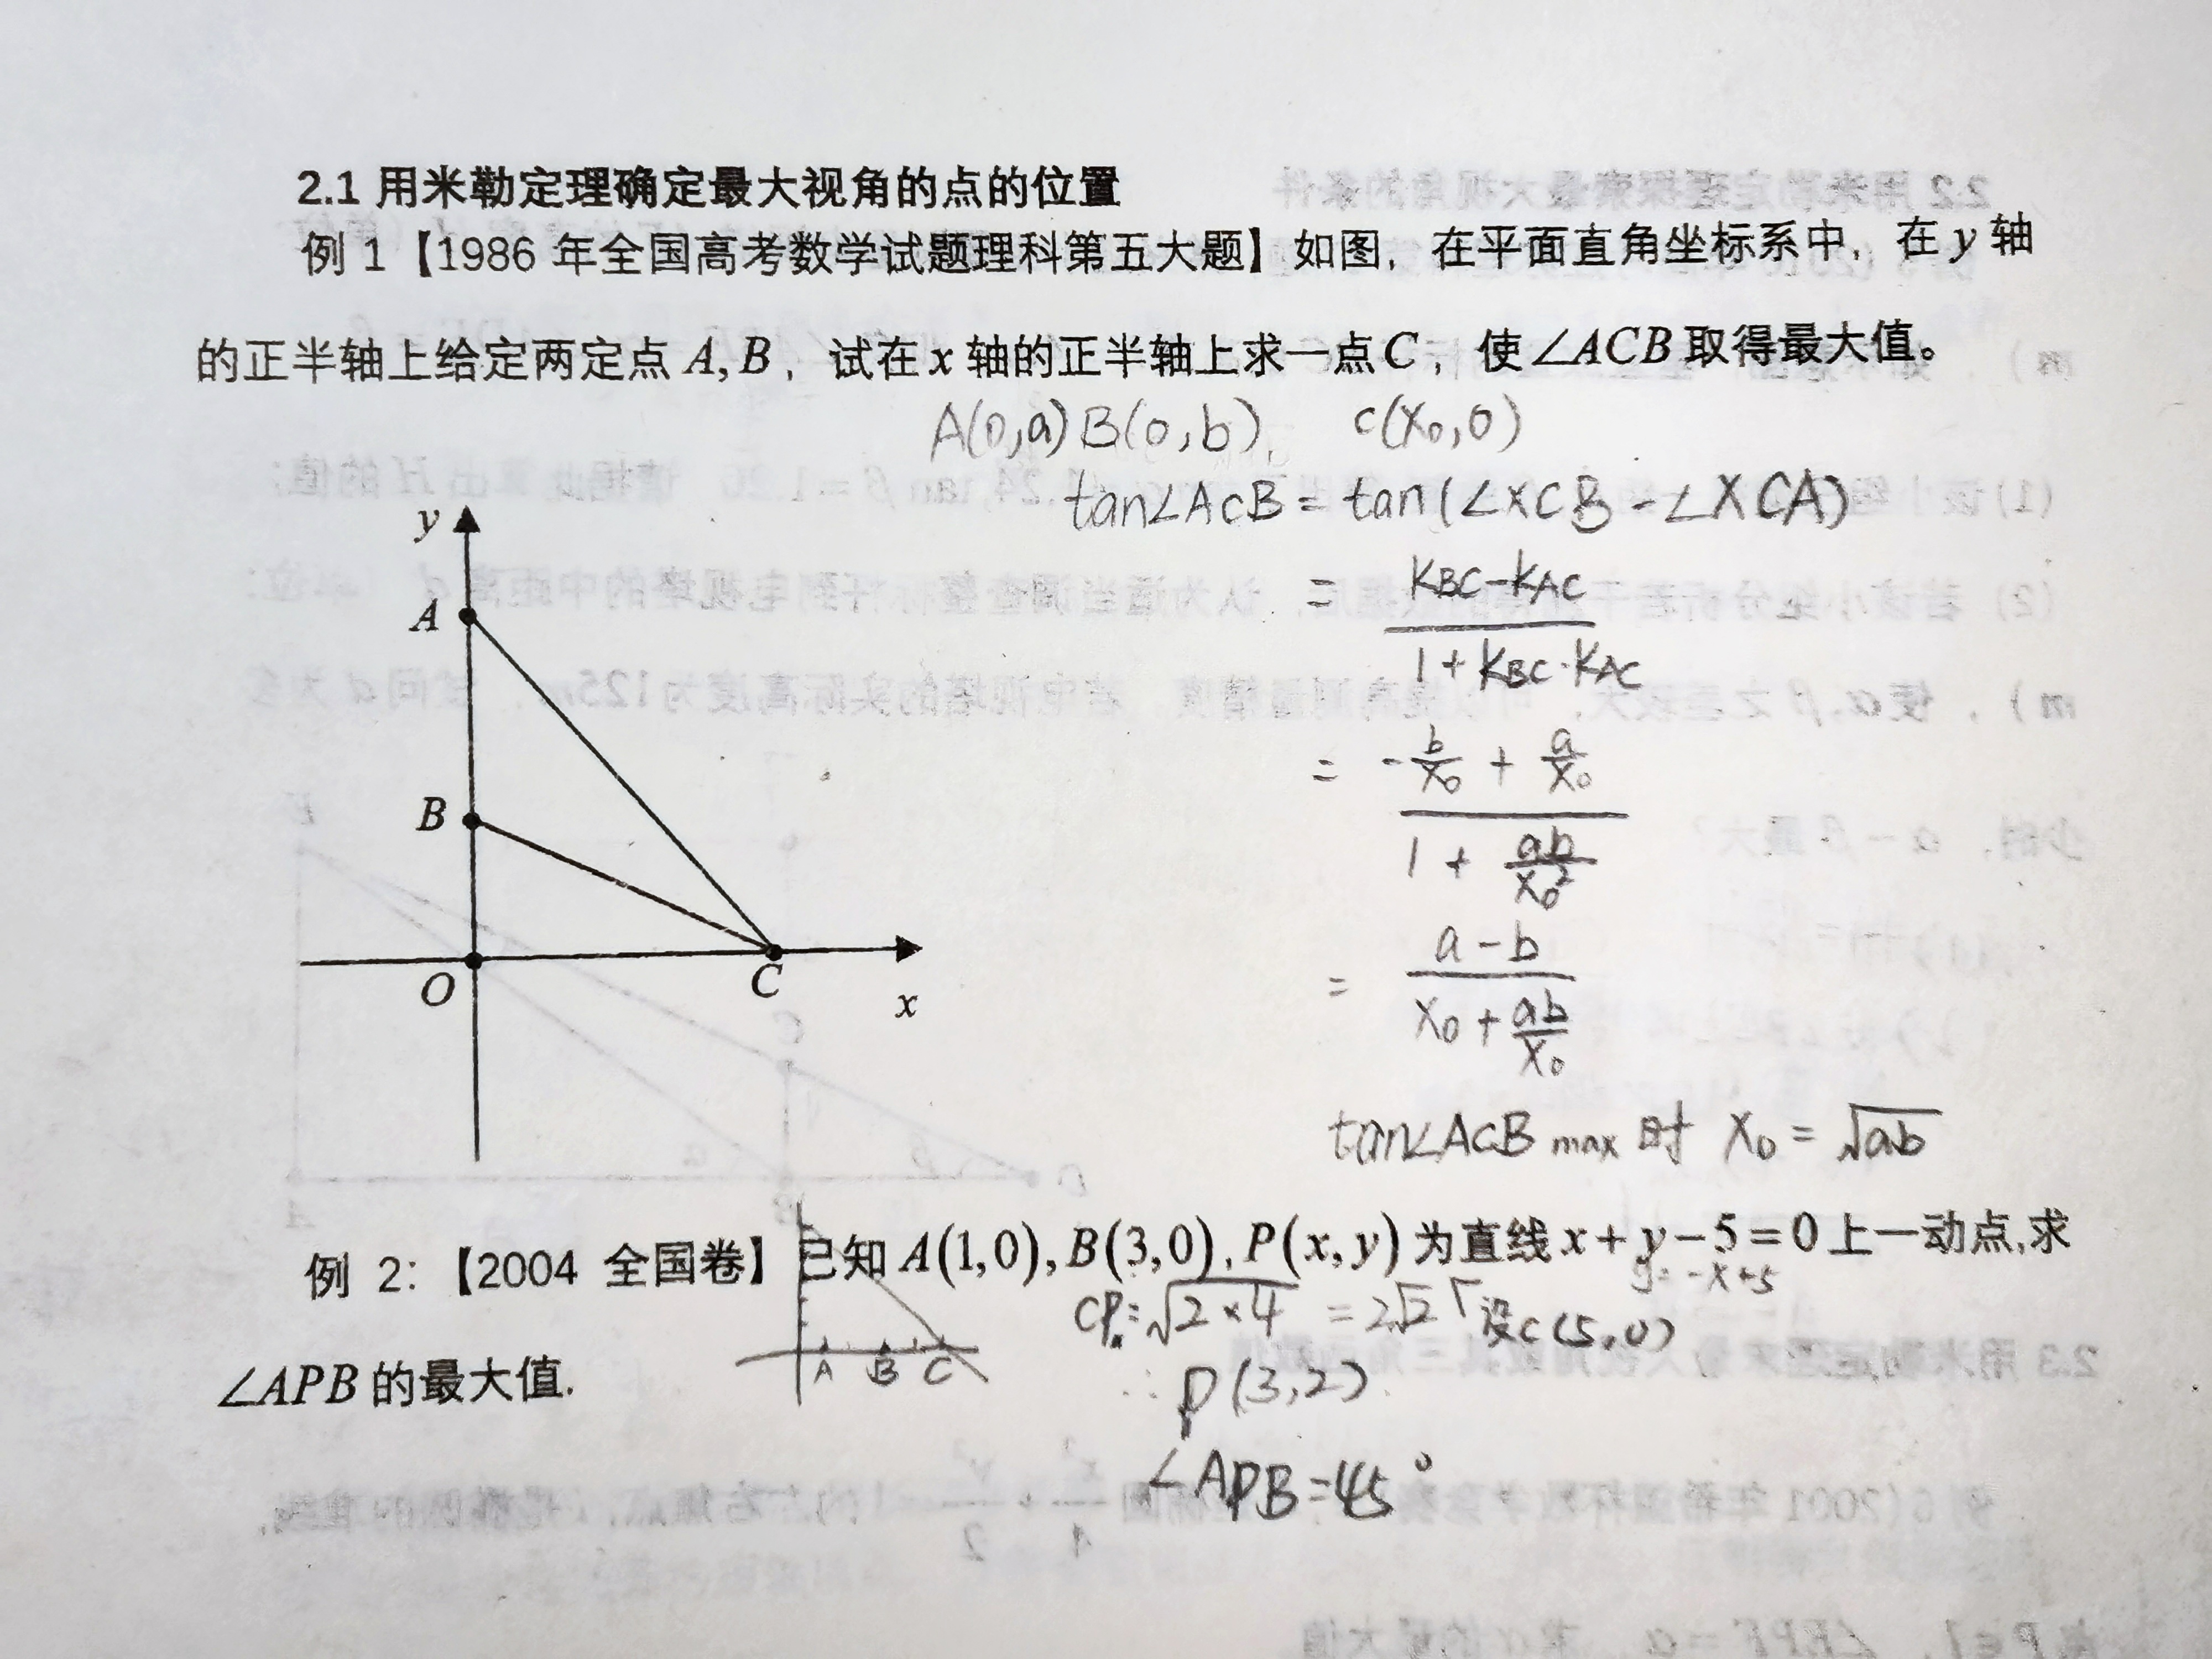 2.1 用米勒定理确定最大视角的点的位置
例 1【1986 年全国高考数学试题理科第五大题】如图，在平面直角坐标系中，在 y 轴
的正半轴上给定两定点 A, B，试在 x 轴的正半轴上求一点 C，使∠ACB 取得最大值。
A(0,a) B(0,b), C(x₀,0)
tan∠ACB = tan(∠XCB - ∠XCA)
= (K_BC - K_AC) / (1 + K_BC·K_AC)
= (-b/x₀ + a/x₀) / (1 + ab/x₀²)
= (a-b) / (x₀ + ab/x₀)
tan∠ACB max 时 x₀ = √ab
y
A
B
O
C
x
例 2:【2004 全国卷】已知 A(1,0), B(3,0), P(x,y) 为直线 x+y-5=0 上一动点,求
y=-x+5
CP = √(2×4) = 2√2 「设C(5,0)
∠APB 的最大值.
A B C
∴ P(3,2)
∠APB=45°